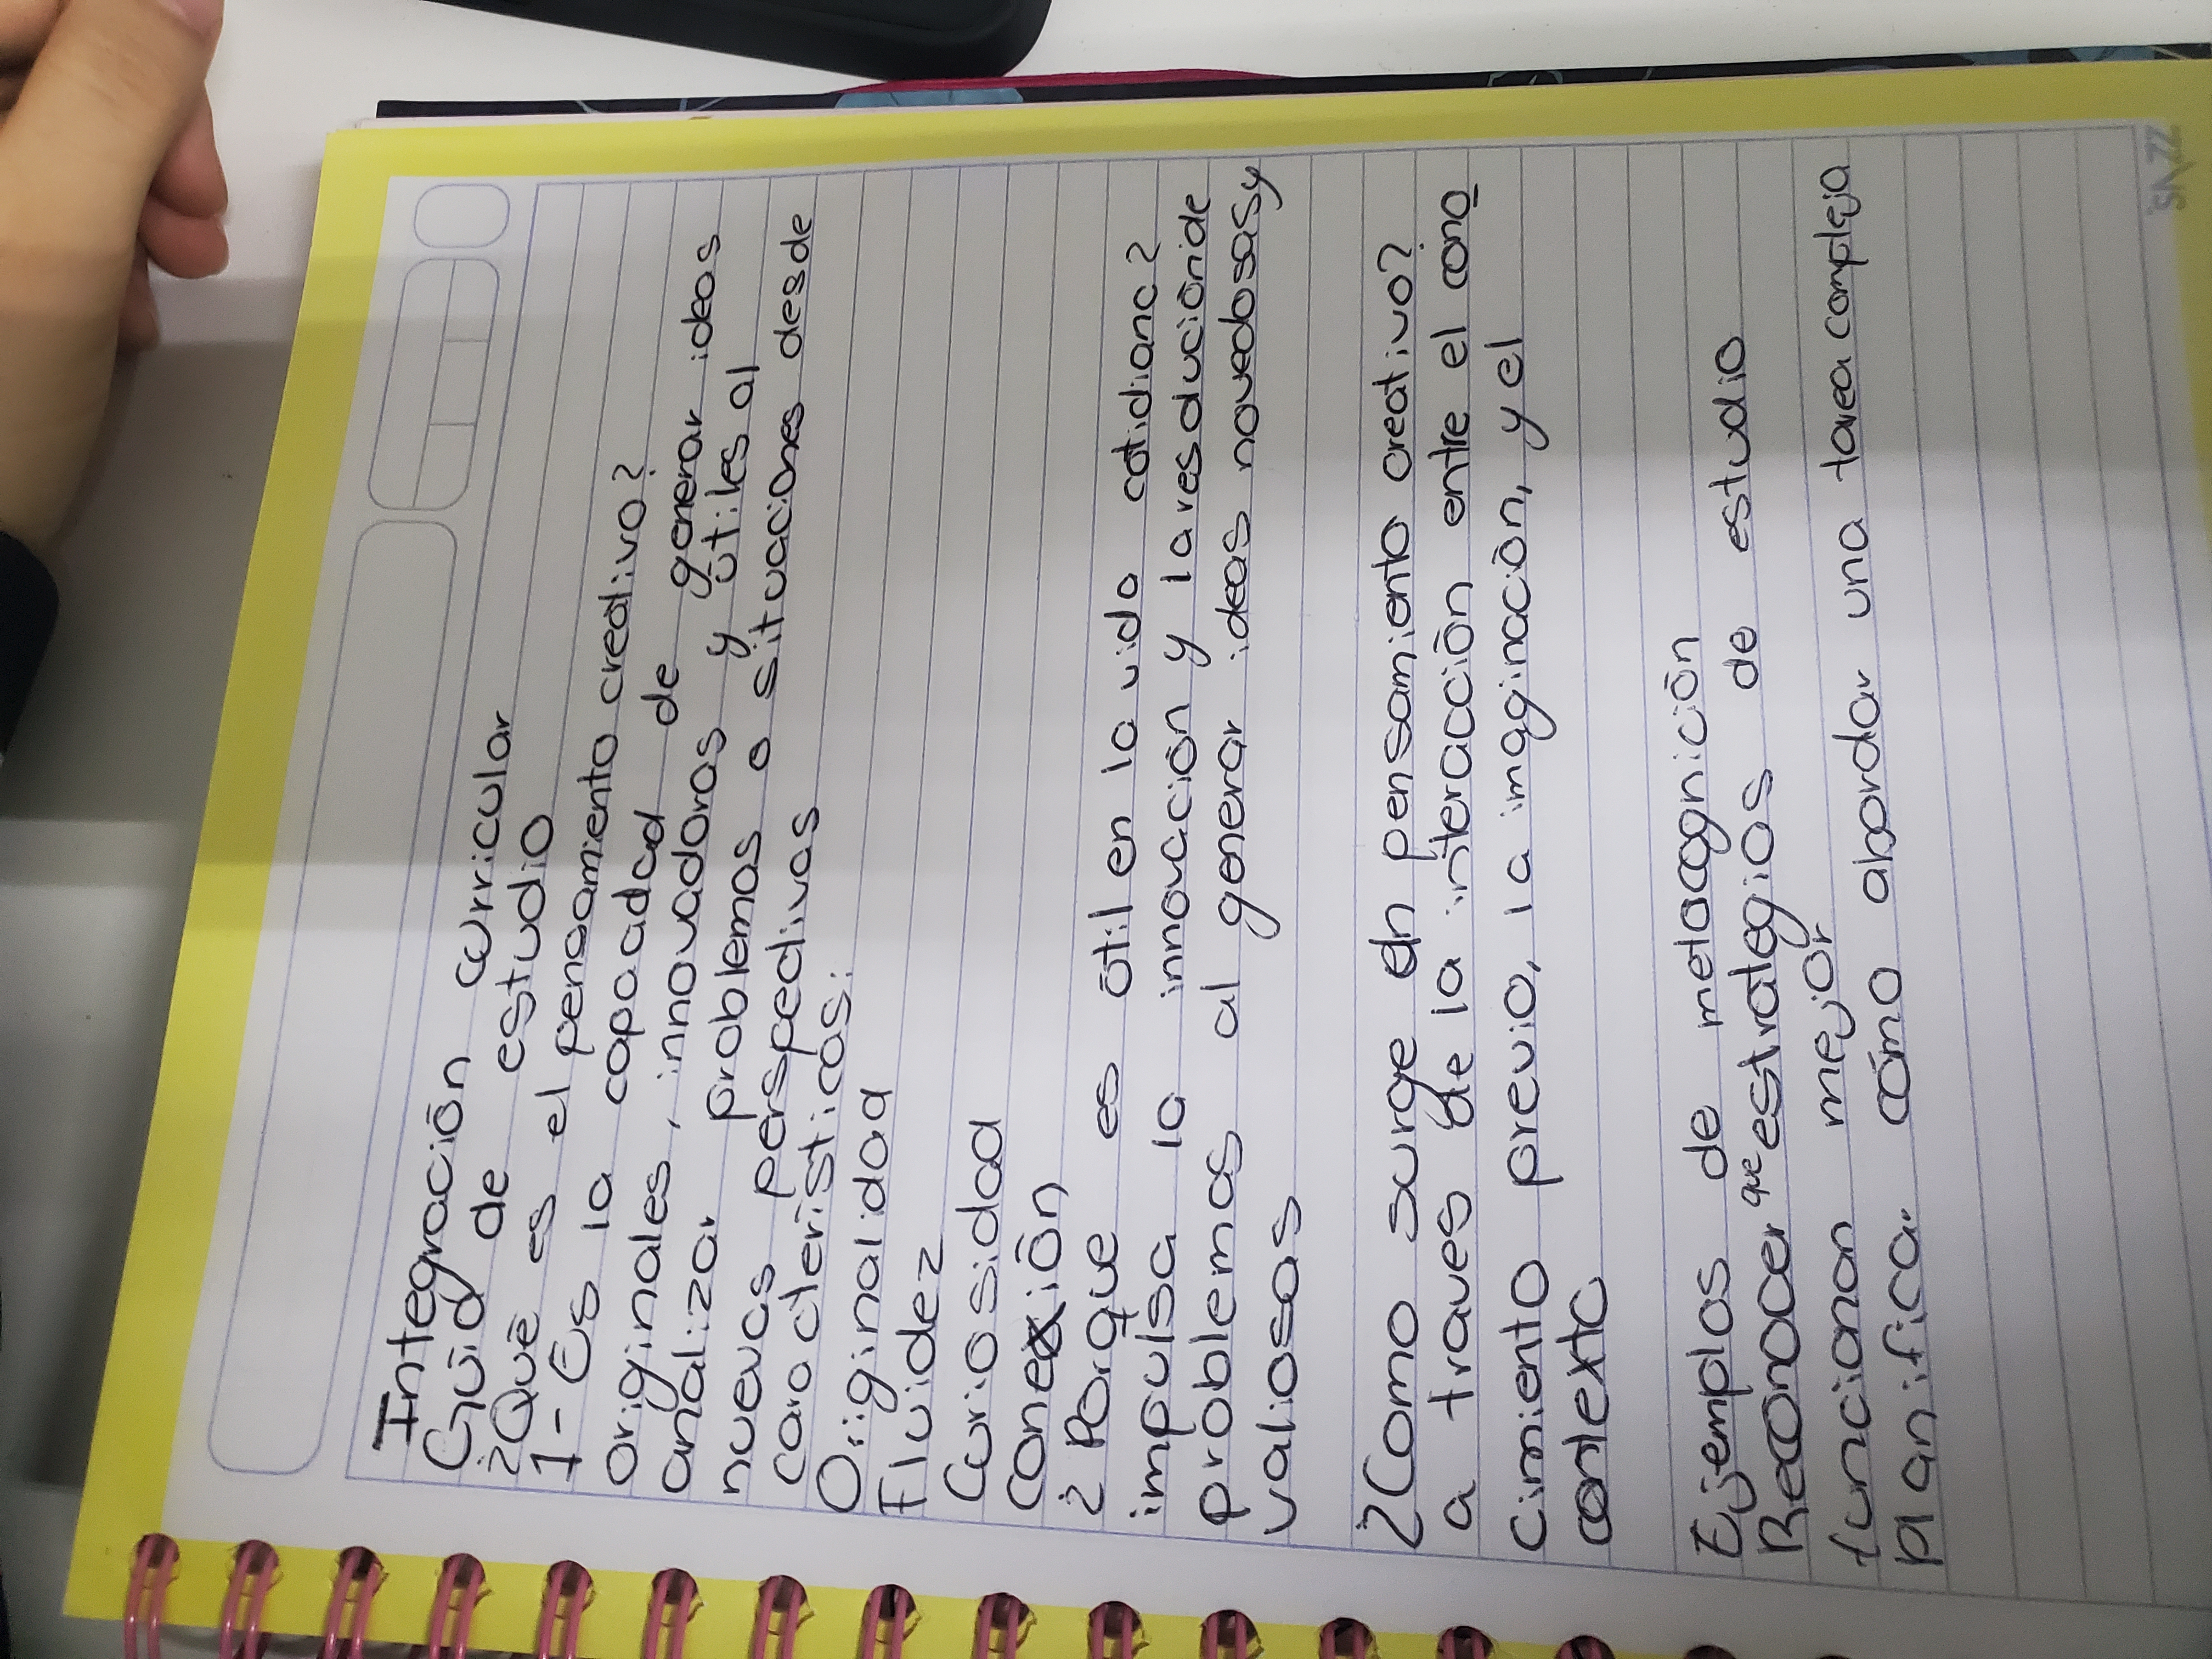 Integración curricular
Guía de estudio
¿Qué es el pensamiento creativo?
1- Es la capacidad de generar ideas
originales, innovadoras y útiles al
analizar problemas o situaciones desde
nuevas perspectivas
características:
Originalidad
Fluidez
Curiosidad
Conexión
¿Porque es útil en la vida cotidiana?
impulsa la innovación y la resolución de
problemas al generar ideas novedosas y
valiosas
¿Como surge un pensamiento creativo?
a traves de la interacción entre el cono
cimiento previo, la imaginación, y el
contexto
Ejemplos de metacognición
Reconocer que estrategias de estudio
funcionan mejor
planificar cómo abordar una tarea compleja